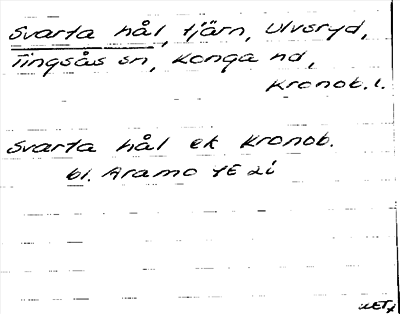 Svarta hål, tjärn, Ulvsryd,
Tingsås sn, Konga hd,
Kronob. l.
Svarta hål ek Kronob.
bl. Aramo 4E 2i